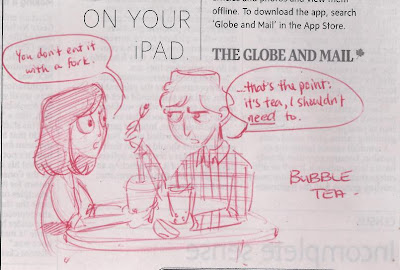 ON YOUR
iPAD.
and photos and view them
offline. To download the app, search
'Globe and Mail' in the App Store.
THE GLOBE AND MAIL
You don't eat it
with a fork.
...that's the point:
it's tea, I shouldn't
need to.
BUBBLE
TEA -